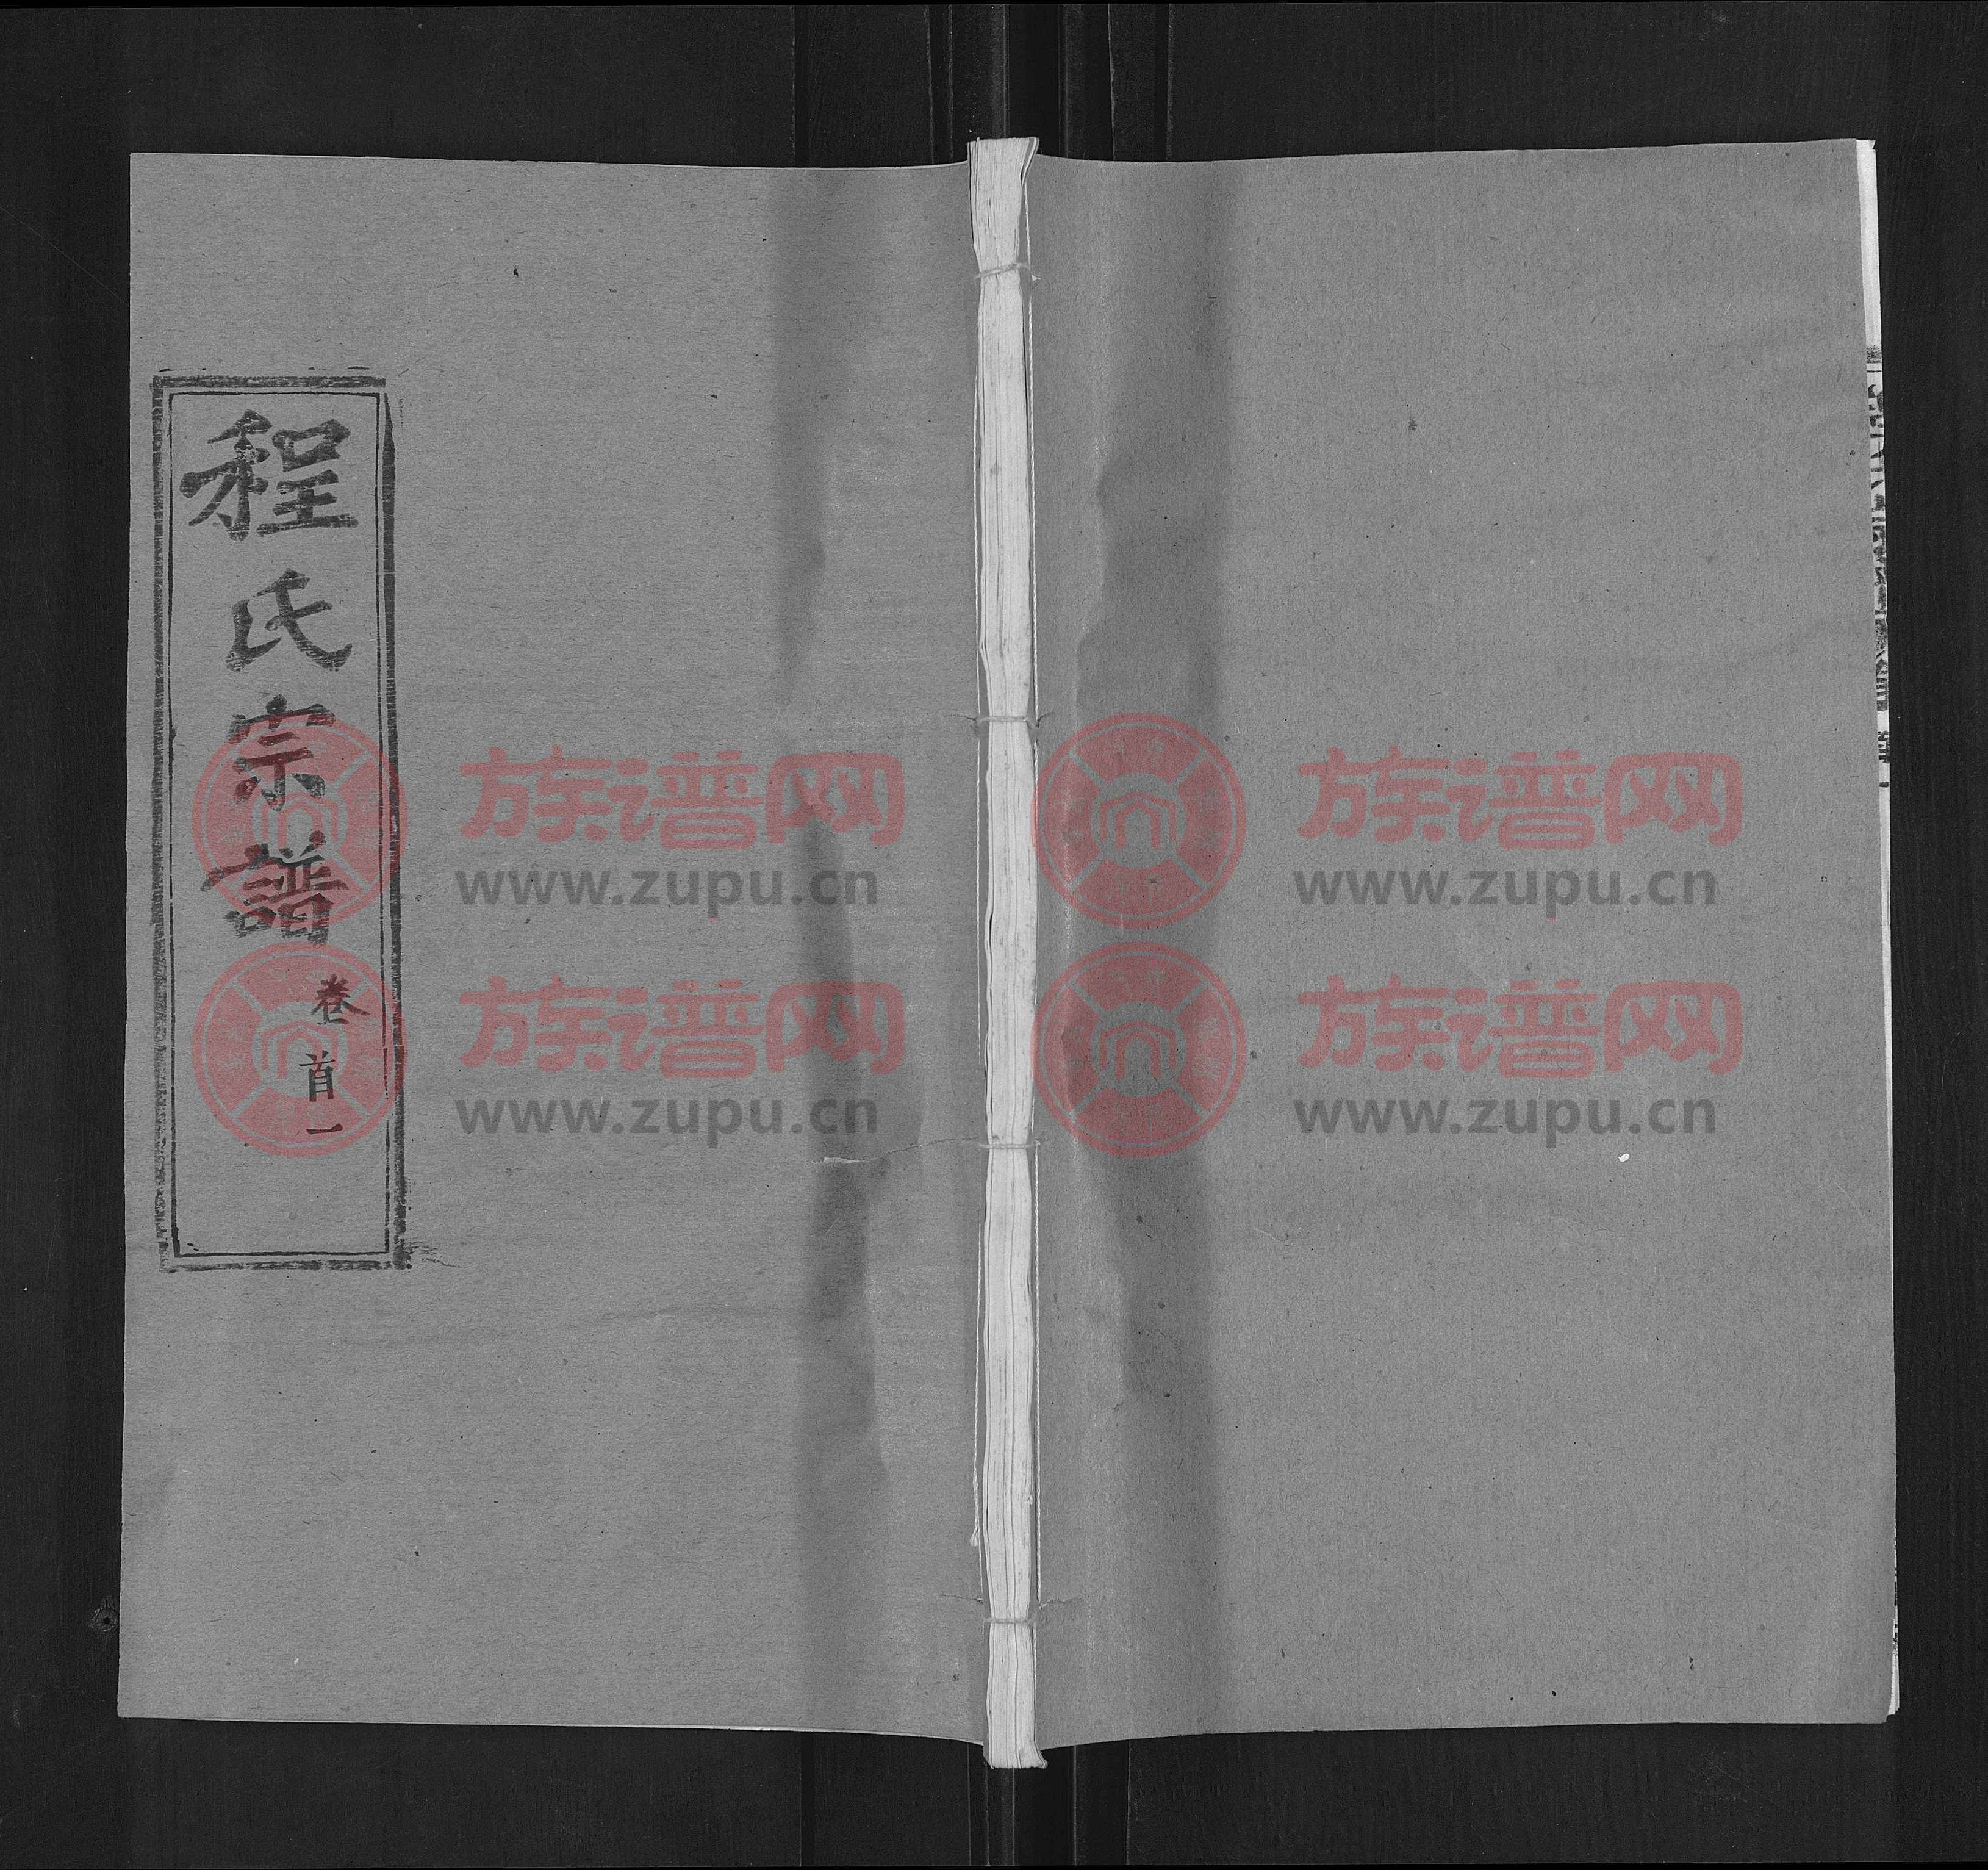 程氏宗譜
卷首一
族谱网
www.zupu.cn
族谱网
www.zupu.cn
族谱网
www.zupu.cn
族谱网
www.zupu.cn